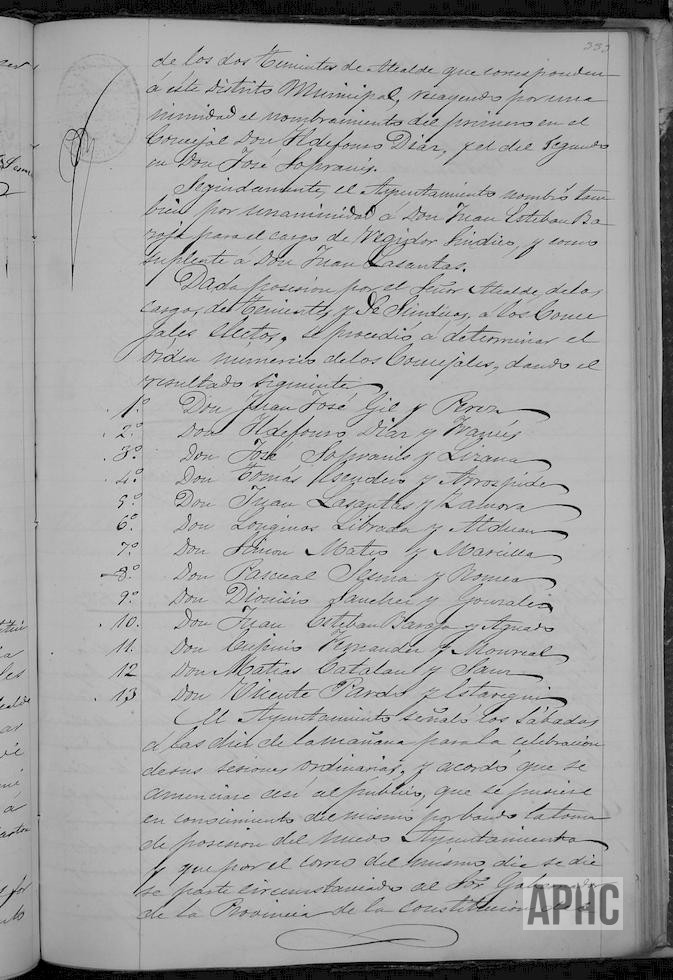 333
de los dos Tenientes de Alcalde que corresponden
á este Distrito Municipal, recayendo por una
nimidad el nombramiento del primero en el
Concejal Don Ildefonso Diaz, y el del Segundo
en Don José Sopranis.
Seguidamente, el Ayuntamiento nombró tam
bien por unanimidad á Don Juan Esteban Ba
roja para el cargo de Regidor Sindico, y como
suplente á Don Juan Lasantas.
Dada posesion por el Señor Alcalde, de los
cargos de Tenientes y de Sindicos, á los Conce
jales electos, se procedió á determinar el
orden numerico de los Concejales, dando el
resultado siguiente
1.º Don Juan José Gil y Perez
2.º Don Ildefonso Diaz y
3.º Don José Sopranis y Lizana
4.º Don Tomás Escudero y Arrospide
5.º Don Juan Lasantas y Zamora
6.º Don Longinos Librada y Alduan
7.º Don Simon Mateo y Marcilla
8.º Don Pascual Sesma y Romea
9.º Don Dionisio Sanchez y Gonzalez
10. Don Juan Esteban Baroja y Aguado
11. Don Fernandez y Monreal
12 Don Matias Catalan y Sanz
13 Don Vicente Pardo y
El Ayuntamiento señaló los Sábados
á las diez de la mañana para la celebracion
de sus sesiones ordinarias, y acordó que se
anunciase asi al publico, que se pusiese
en conocimiento del mismo por bando la toma
de posesion del nuevo Ayuntamiento
y que por el correo del mismo dia se die
se parte circunstanciado al Sor.
de la Provincia de la constitucion
APHC